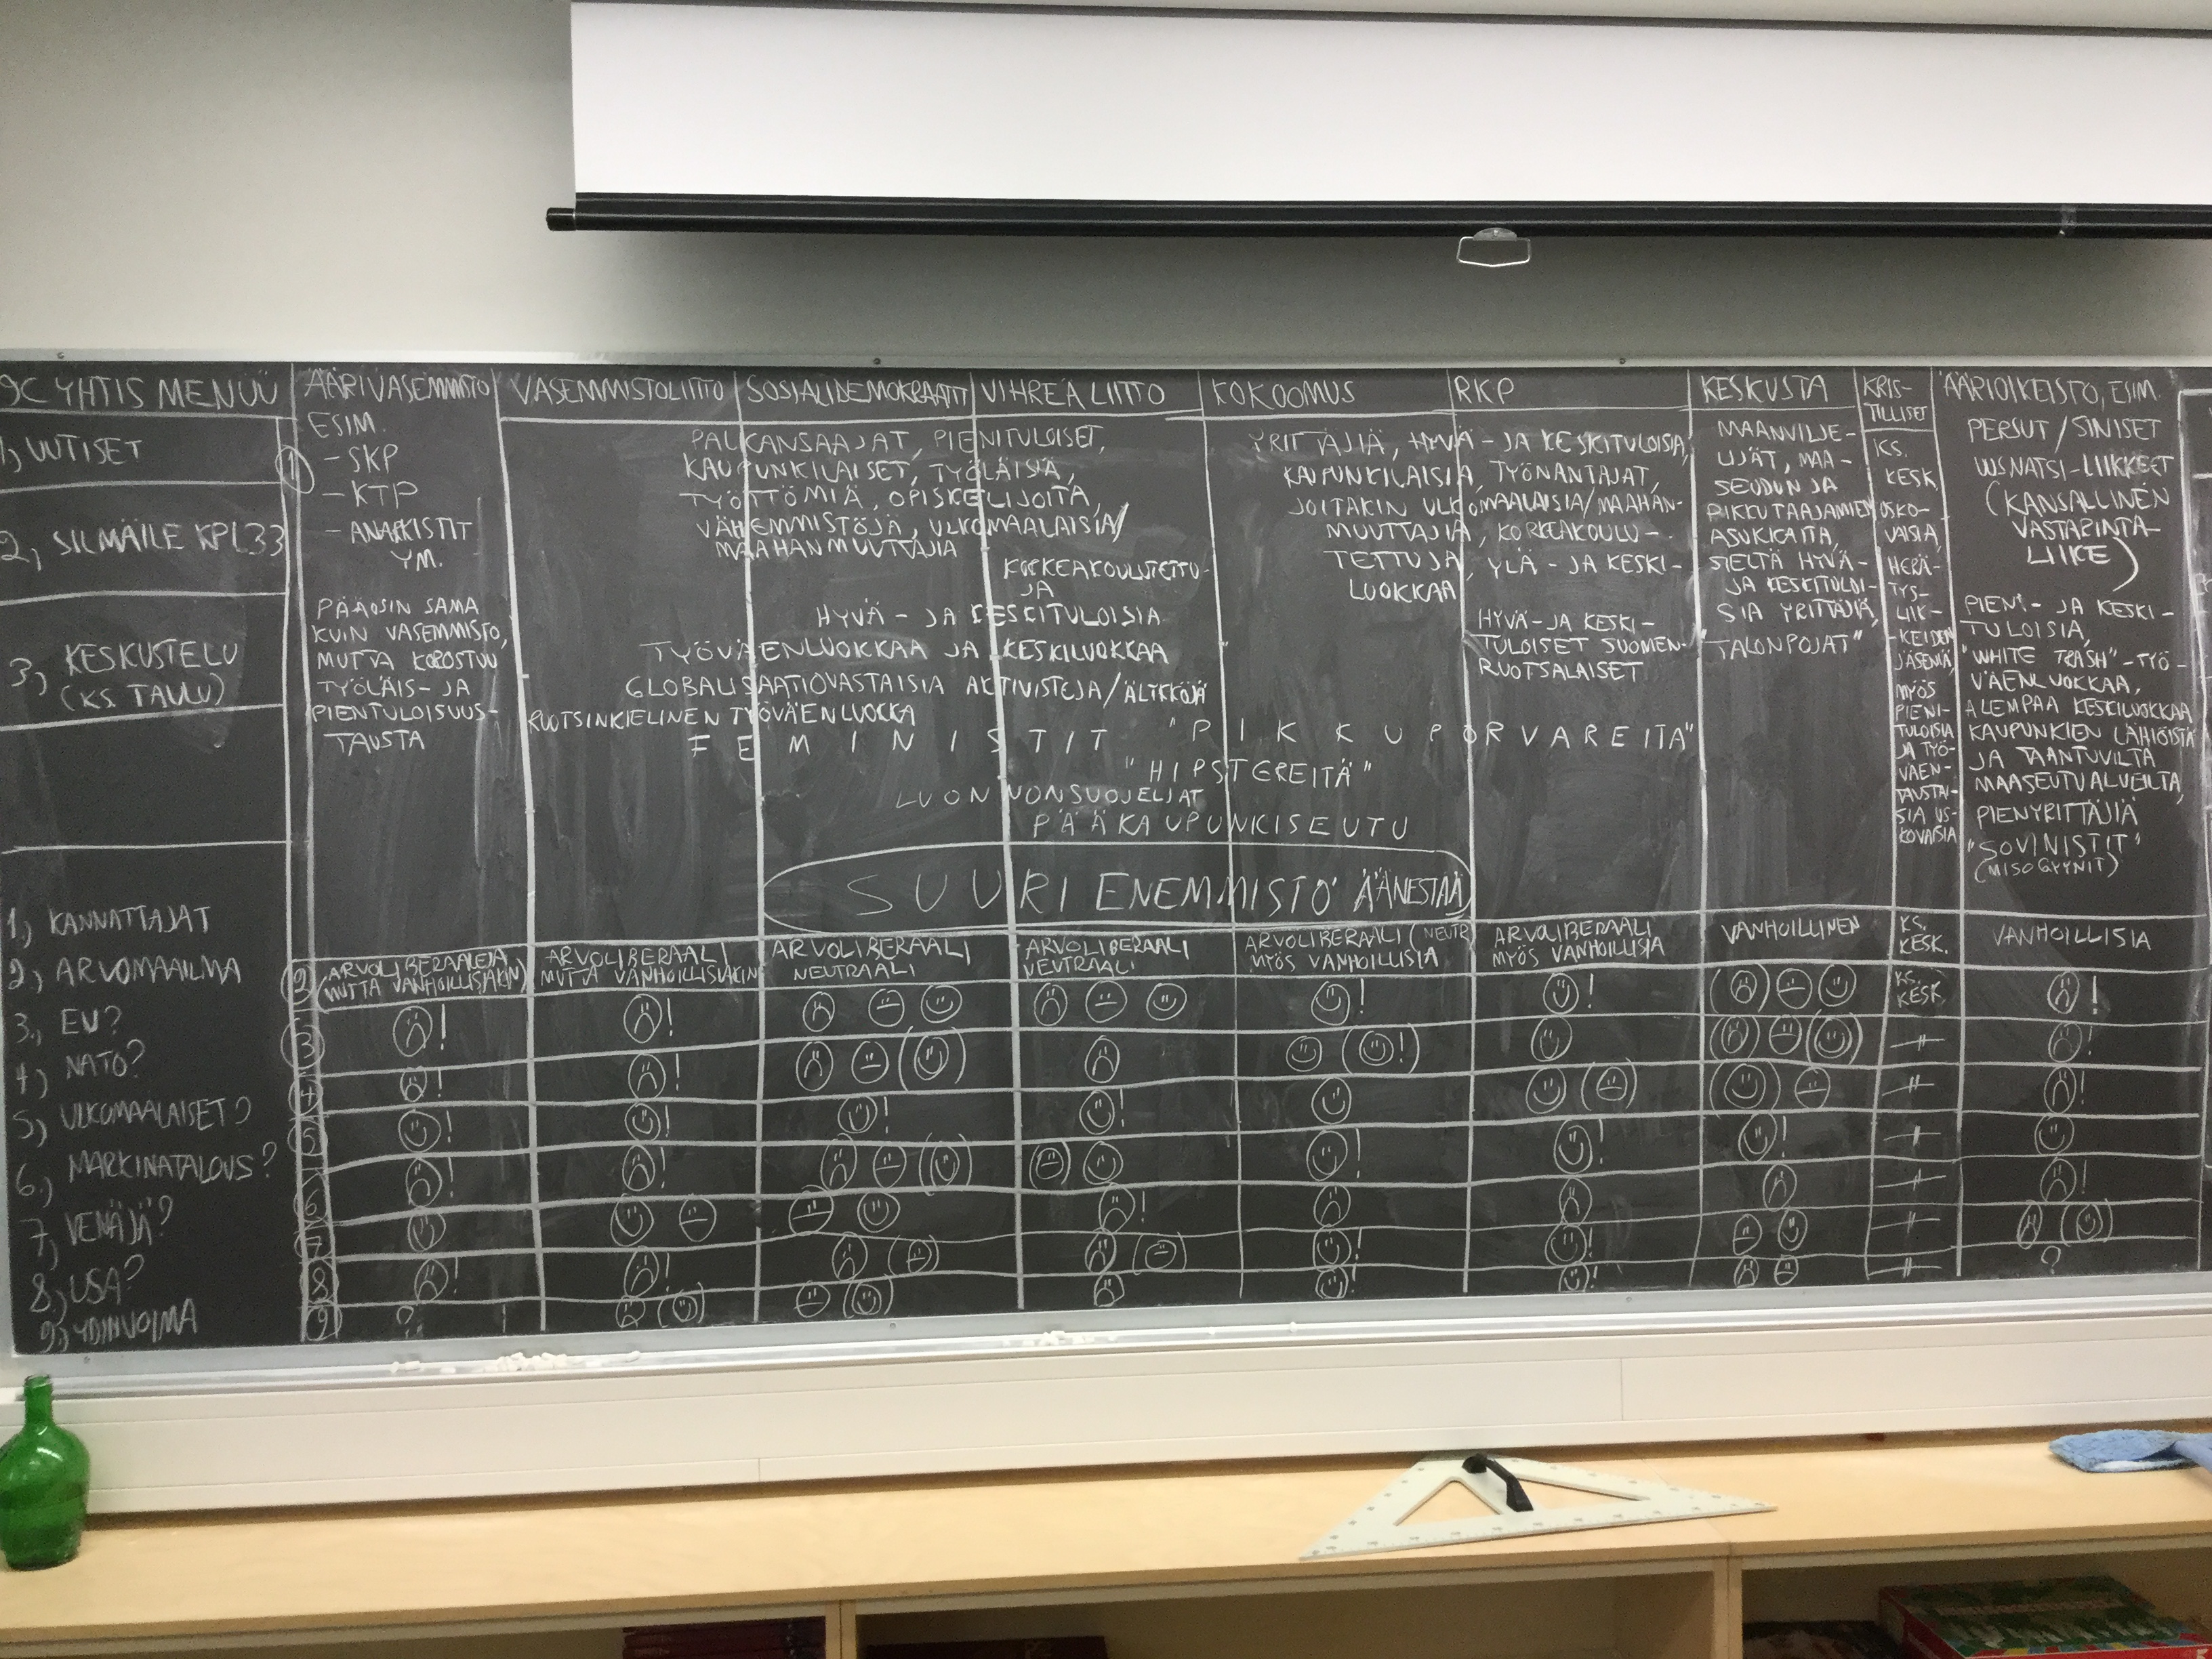 9C YHTIS MENUU
1, UUTISET
2, SILMÄILE KPL33
3, KESKUSTELU
(KS. TAULU)
1, KANNATTAJAT
2, ARVOMAAILMA
3, EU?
4, NATO?
5, ULKOMAALAISET?
6, MARKINATALOUS?
7, VENÄJÄ?
8, USA?
9, YDINVOIMA
ÄÄRIVASEMMISTO
ESIM.
1
- SKP
- KTP
- ANARKISTIT
YM.
PÄÄOSIN SAMA
KUIN VASEMMISTO,
MUTTA KOROSTUU
TYÖLÄIS- JA
PIENTULOISUUS-
TAUSTA
VASEMMISTOLIITTO
SOSIALIDEMOKRAATIT
VIHREÄ LIITTO
PALKANSAAJAT, PIENITULOISET,
KAUPUNKILAISET, TYÖLÄISIÄ,
TYÖTTÖMIÄ, OPISKELIJOITA,
VÄHEMMISTÖJÄ, ULKOMAALAISIA/
MAAHANMUUTTAJIA
KORKEAKOULUTETTU-
JA
HYVÄ- JA KESKITULOISIA
TYÖVÄENLUOKKAA JA KESKILUOKKAA
GLOBALISAATIOVASTAISIA AKTIVISTEJA/ÄLYKKÖJÄ
RUOTSINKIELINEN TYÖVÄENLUOKKA
FEMINISTIT
"PIKKUPORVAREITA"
"HIPSTEREITÄ"
LUONNONSUOJELIJAT
PÄÄKAUPUNKISEUTU
SUURI ENEMMISTÖ ÄÄNESTÄÄ
KOKOOMUS
RKP
YRITTÄJIÄ, HYVÄ- JA KESKITULOISIA,
KAUPUNKILAISIA, TYÖNANTAJAT,
JOITAKIN ULKOMAALAISIA/MAAHAN-
MUUTTAJIA, KORKEAKOULU-
TETTUJA, YLÄ- JA KESKI-
LUOKKAA
HYVÄ-JA KESKI-
TULOISET SUOMEN-
RUOTSALAISET
KESKUSTA
MAANVILJE-
LIJÄT, MAA-
SEUDUN JA
PIKKUTAAJAMIEN
ASUKKAITA,
SIELTÄ HYVÄ-
JA KESKITULOI-
SIA YRITTÄJIÄ,
"TALONPOJAT"
KRIS-
TILLISET
KS.
KESK,
USKO-
VAISIA,
HERÄ-
TYS-
LIIK-
KEIDEN
JÄSENIÄ,
MYÖS
PIENI-
TULOISIA
JA TYÖ-
VÄEN-
TAUSTAI-
SIA US-
KOVAISIA
ÄÄRIOIKEISTO, ESIM.
PERSUT / SINISET
UUSNATSI-LIIKKEET
(KANSALLINEN
VASTARINTA-
LIIKE)
PIENI- JA KESKI-
TULOISIA,
"WHITE TRASH"-TYÖ-
VÄENLUOKKAA,
ALEMPAA KESKILUOKKAA
KAUPUNKIEN LÄHIÖISTÄ
JA TAANTUVILTA
MAASEUTUALUEILTA,
PIENYRITTÄJIÄ
"SOVINISTIT"
(MISOGYYNIT)
2
ARVOLIBERAALEJA
(MUTTA VANHOILLISIAKIN)
ARVOLIBERAALI
MUTTA VANHOILLISIAKIN
ARVOLIBERAALI
NEUTRAALI
ARVOLIBERAALI
NEUTRAALI
ARVOLIBERAALI (NEUTR
MYÖS VANHOILLISIA
ARVOLIBERAALI
MYÖS VANHOILLISIA
VANHOILLINEN
KS.
KESK.
VANHOILLISIA
KS.
KESK
3
4
5
6
7
8
9
?
?